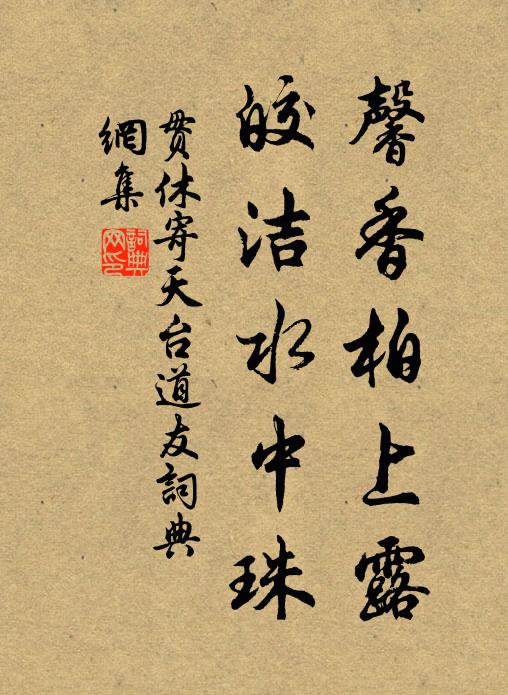 馨香柏上露
皎洁水中珠
貫休寄天台道友詞典
網集
詞典網印